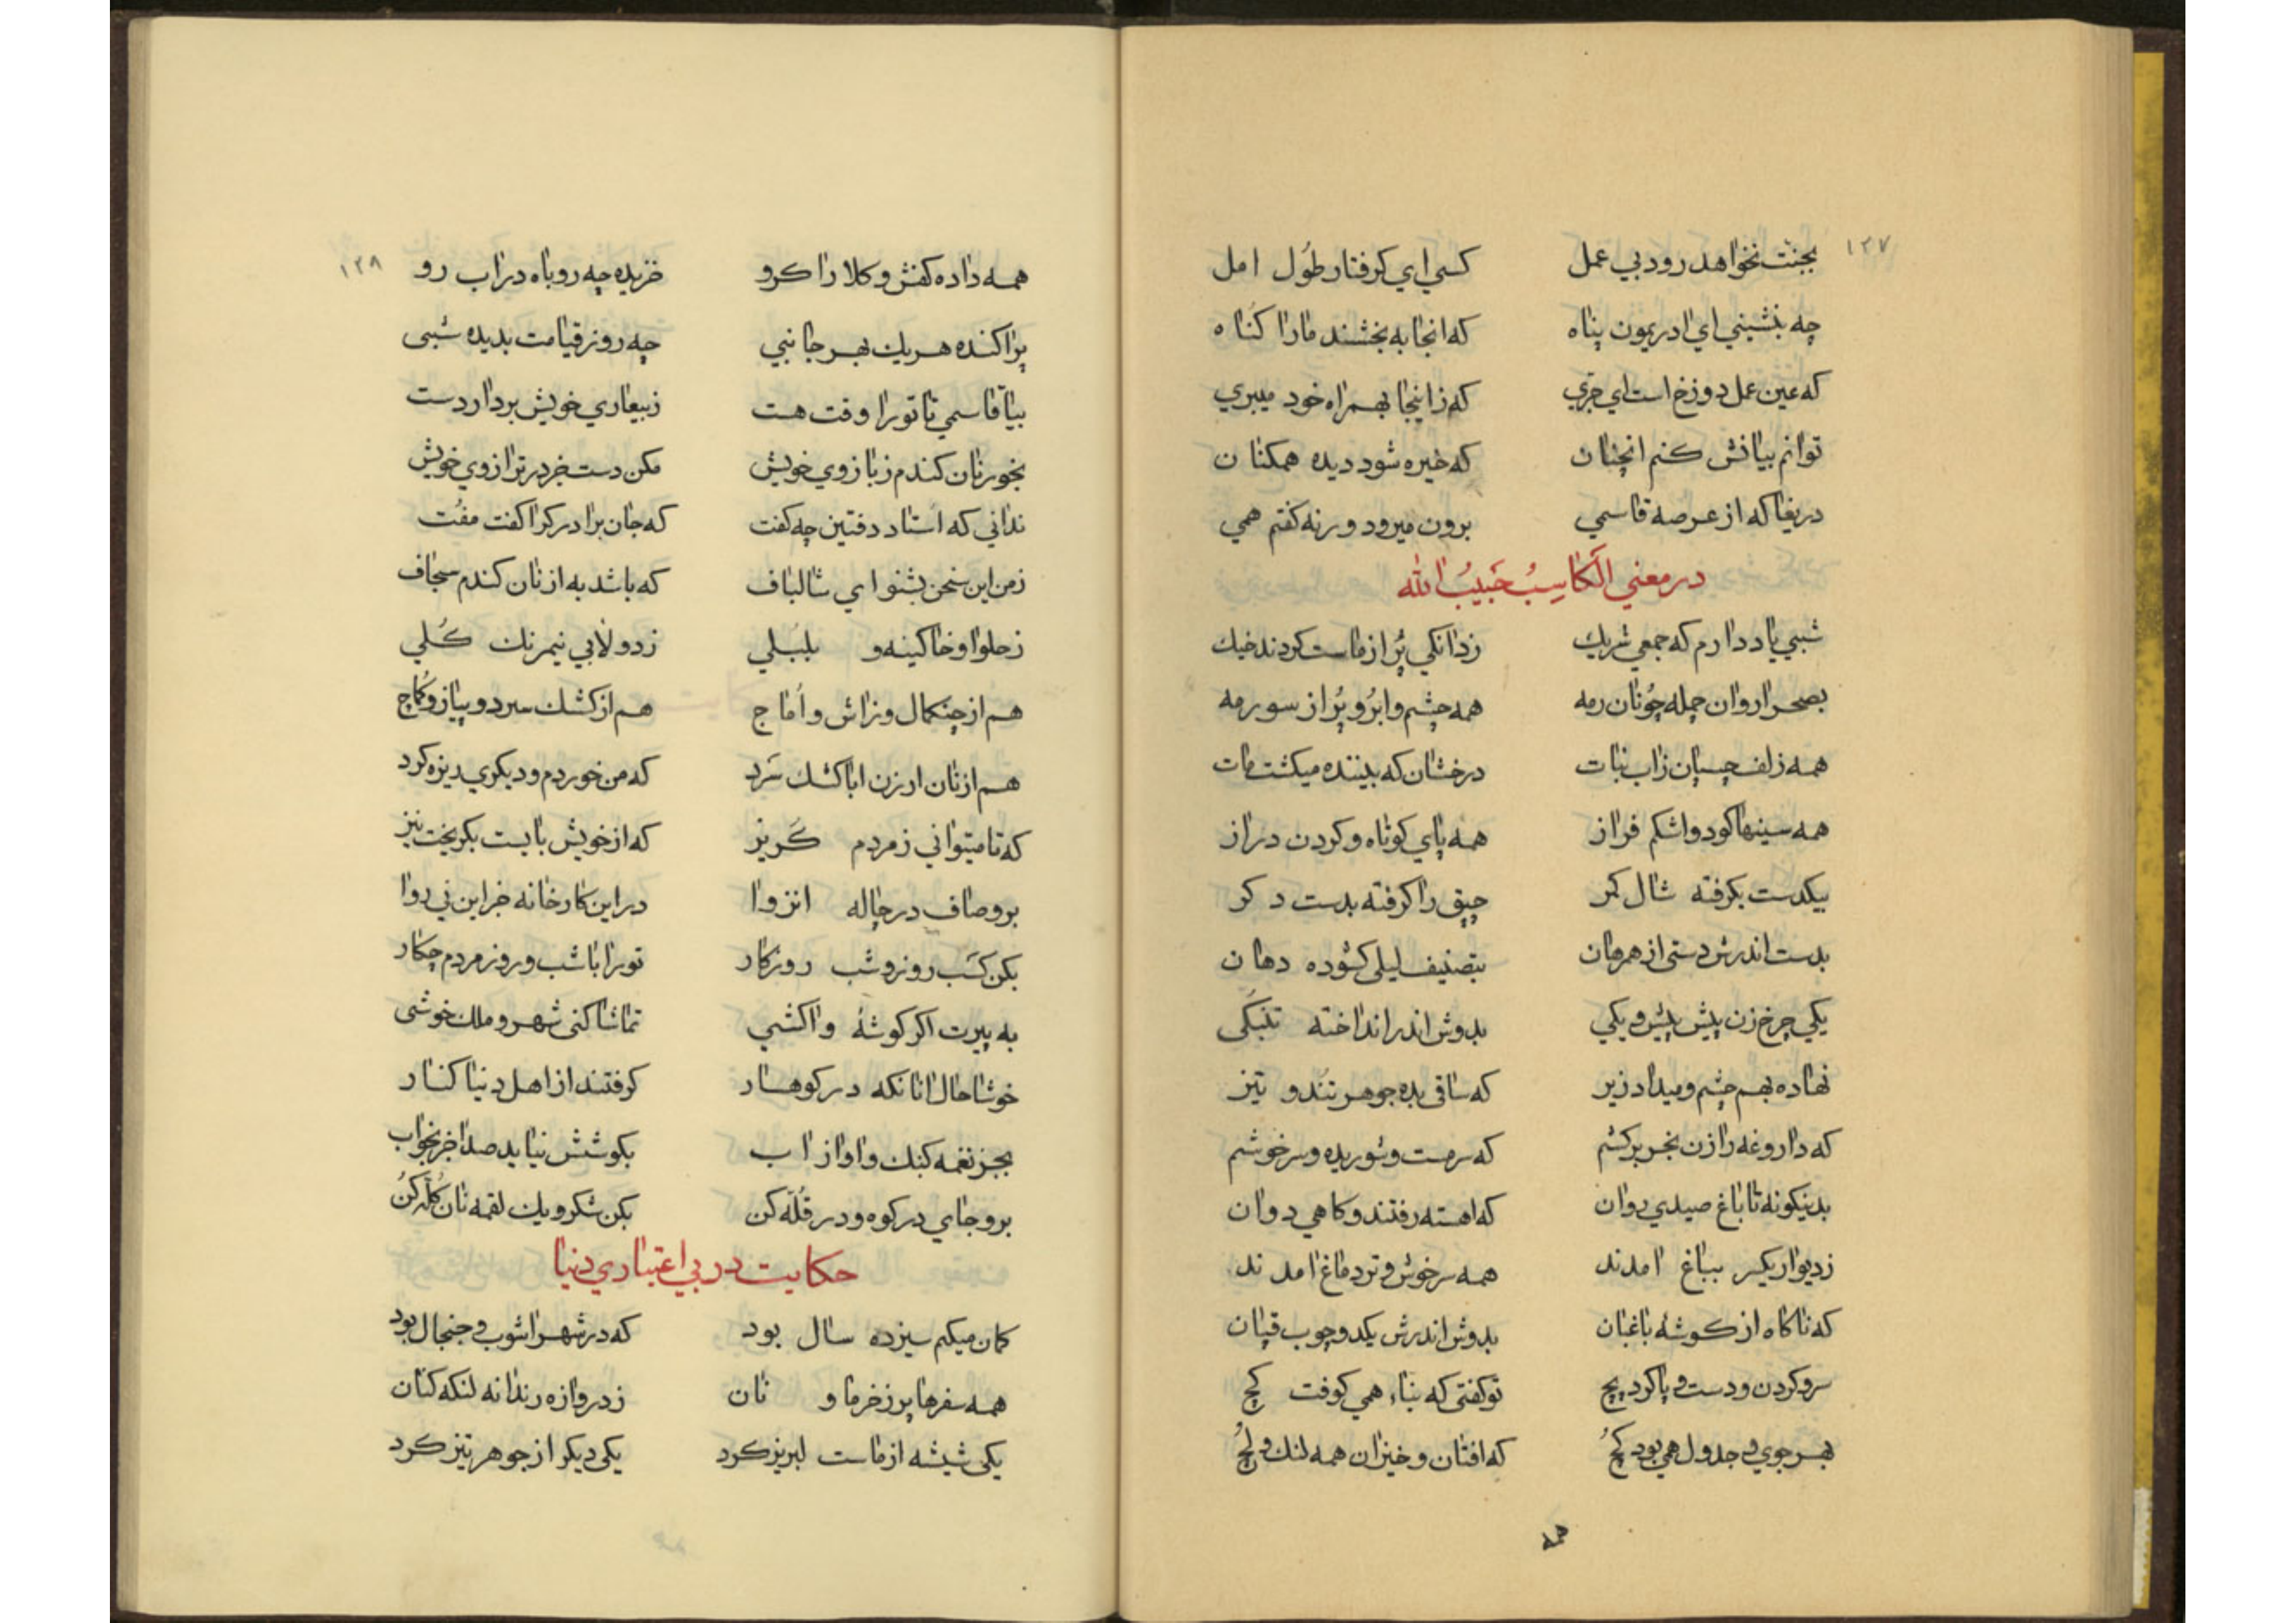 ١٢٧
بجنت نخواهد رود بي عمل کسي اي کرفتار طُول امل
چه بنشيني اي ادريمون پناه که انجا به بخشند مارا کناه
که عين عمل دوزخ است اي جري که زاينجا بهمراه خود ميبري
توانم بيانش کنم انچنان که خيره شود ديده همکنان
دريغا که از عرصه قاسمي برون ميرود ورنه کفتم همي
در معني الکَاسِبُ حَبيبُ الله
شبي ياد دارم که جمعي شريك زدانکي پُر از ماست کردند خيك
بصحرا روان جمله چُونان رمه همه چشم و ابرُو پُر از سورمه
همه زلف چسپان زاب نبات درخشان که بيننده ميکشت مات
همه سينها کود و اشکم فراز همه پاي کوتاه و کردن دراز
بيکدست بکرفته شال کمر چپق را کرفته بدست دکر
بدست اندرش دستي از هرمان بتصنيف ليلي کشوده دهان
يکي چرخ زن پيش پيش و يکي بدوش اندر انداخته تنبکَي
نهاده بهم چشم و ميداد زير که ساقي بده جوهر تند و تيز
که داروغه را زن بخر برکشم که سرمست و شوريده و سرخوشم
بدينکونه تا باغ صيدي روان که اهسته رفتند و کاهي دوان
زديوار يکسر بباغ امدند همه سرخوش و تردماغ امدند
که ناکاه از کوشهٔ باغبان بدوش اندرش يکدو چوب قپان
سر و کردن و دست و پا کرد پيچ توکفتي که بناء همي کوفت کچ
بهر جوي و جدول همي بود کُچ که افتان و خيزان همه لنك و لُچ
همه
١٢٨
همه داده کفش و کلا را کرو خزيده چه روباه دراب رو
پراکنده هريك بهر جانبي چه روز قيامت بديده شبي
بيا قاسمي تا تورا وقت هست زبيعاري خويش بردار دست
بخور نان کندم زبازوي خويش مکن دست خر در ترازوي خويش
نداني که استاد دفتين چه کفت که جان برادر کرا کفت مفُت
زمن اين سخن بشنو اي شالباف که باشد به از نان کندم سجاف
زحلوا و خاکينه و بلبُلي زدولابي نيمرنك کُلي
هم از چنکمال و زاش و اُماج هم از کشك سرد و پياز و کُماج
هم از نان ارزن ابا کشك سَرد که من خوردم و ديکري ديزه کرد
که تا ميتواني زمردم کَريز که از خويش بايست بکريخت نيز
برو صاف در چاله انزوا در اين کارخانه جز اين ني روا
بکن کسَب روز و شب روزکار تورا با شب و روز مردم چکار
به پيرت اکر کوشهٔ واکشي تماشا کني شهر و ملك خوشي
خوشا حال انانکه در کوهسار کرفتند از اهل دنيا کنار
بجز نغمه کبك و اواز اب بکوشش نيايد صدا جز بخواب
برو جاي در کوه و در قُلّه کن بکن شکر و يك لقمه نان کُلّه کنُ
حکايت در بي اعتباري دنيا
کمان ميکنم سيزده سال بود که در شهر اشوب و جنجال بود
همه سفرها پر زخرما و نان زدروازه رندانه لنکه کنان
يکي شيشه از ماست لبريز کرد يکي ديکر از جوهر تيز کرد